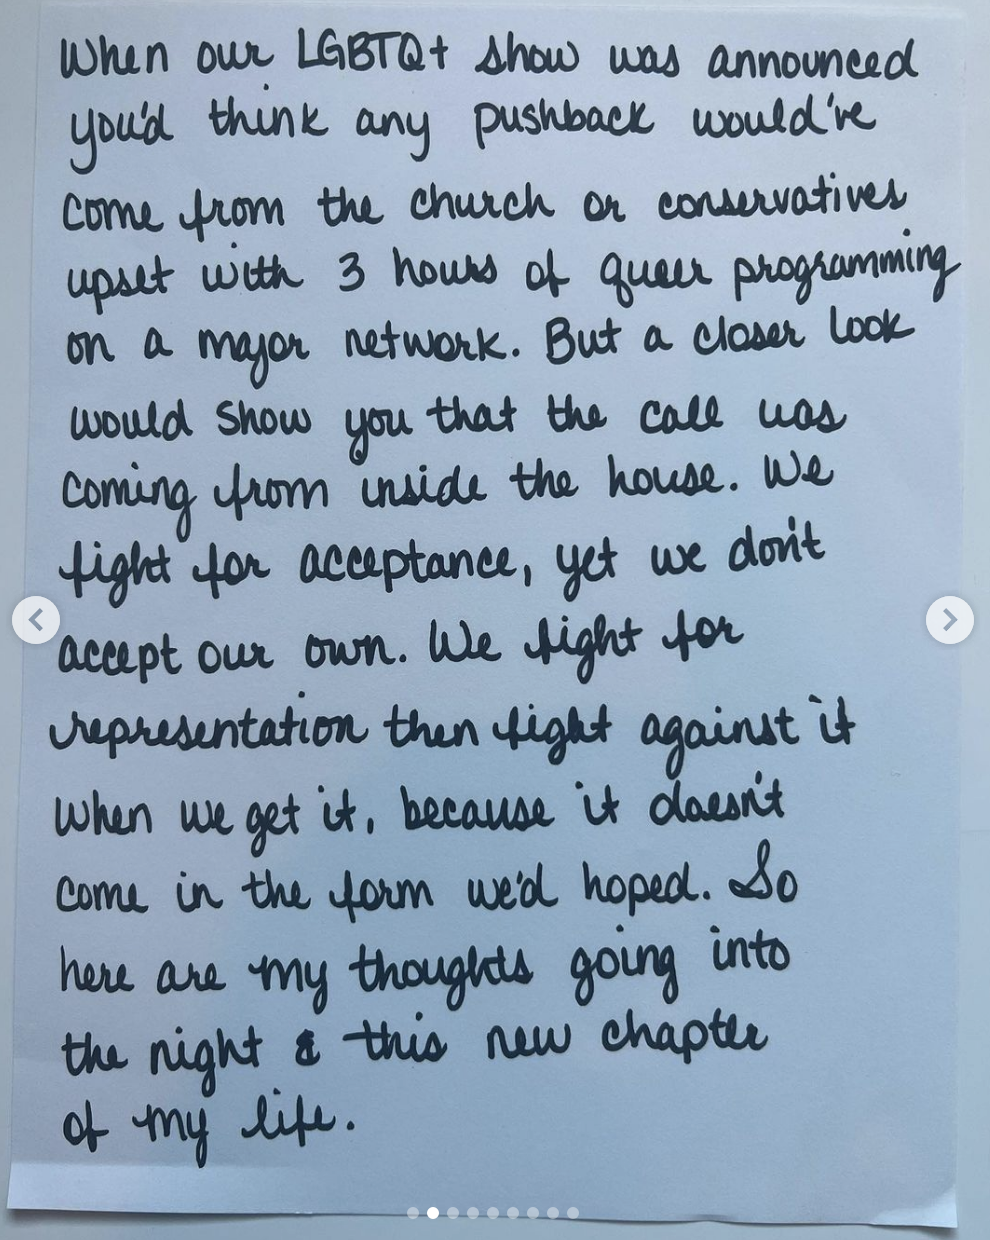 When our LGBTQ+ show was announced
you'd think any pushback would've
come from the church or conservatives
upset with 3 hours of queer programming
on a major network. But a closer look
would show you that the call was
coming from inside the house. We
fight for acceptance, yet we don't
accept our own. We fight for
representation then fight against it
when we get it, because it doesn't
come in the form we'd hoped. So
here are my thoughts going into
the night & this new chapter
of my life.